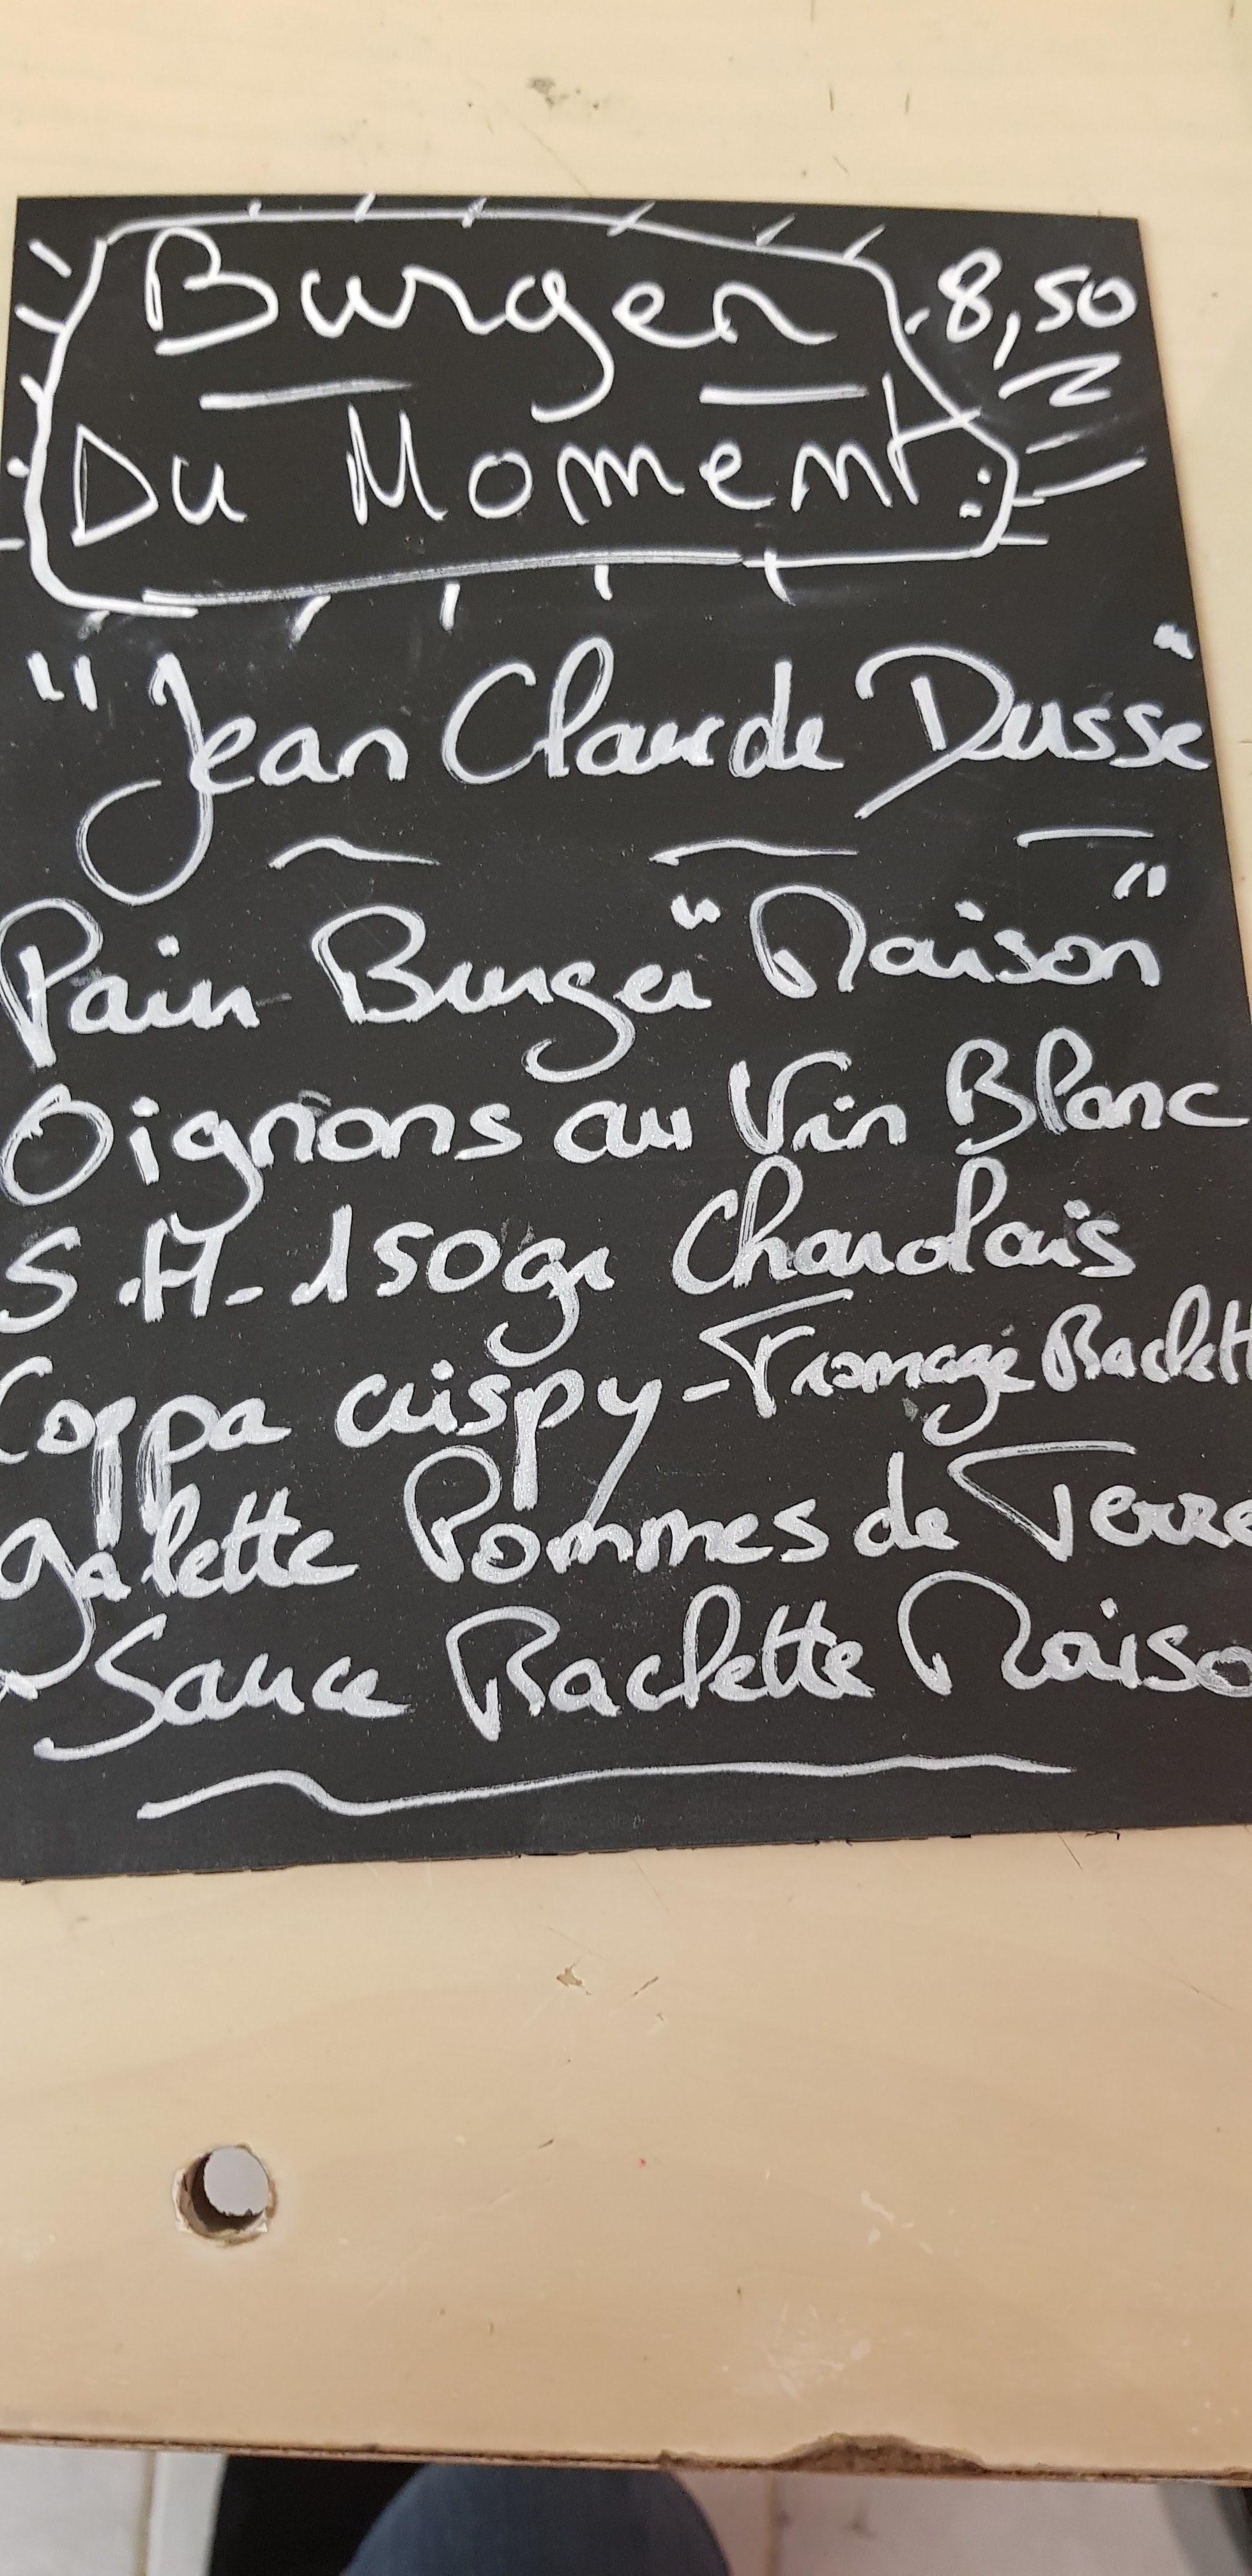 Burger 8,50
Du Moment:
"Jean Claude Dusse"
Pain Burger "Maison"
Oignons au Vin Blanc
S.H. 150gr Charolais
Coppa crispy - Fromage Raclett
Galette Pommes de Terre
Sauce Raclette Maiso